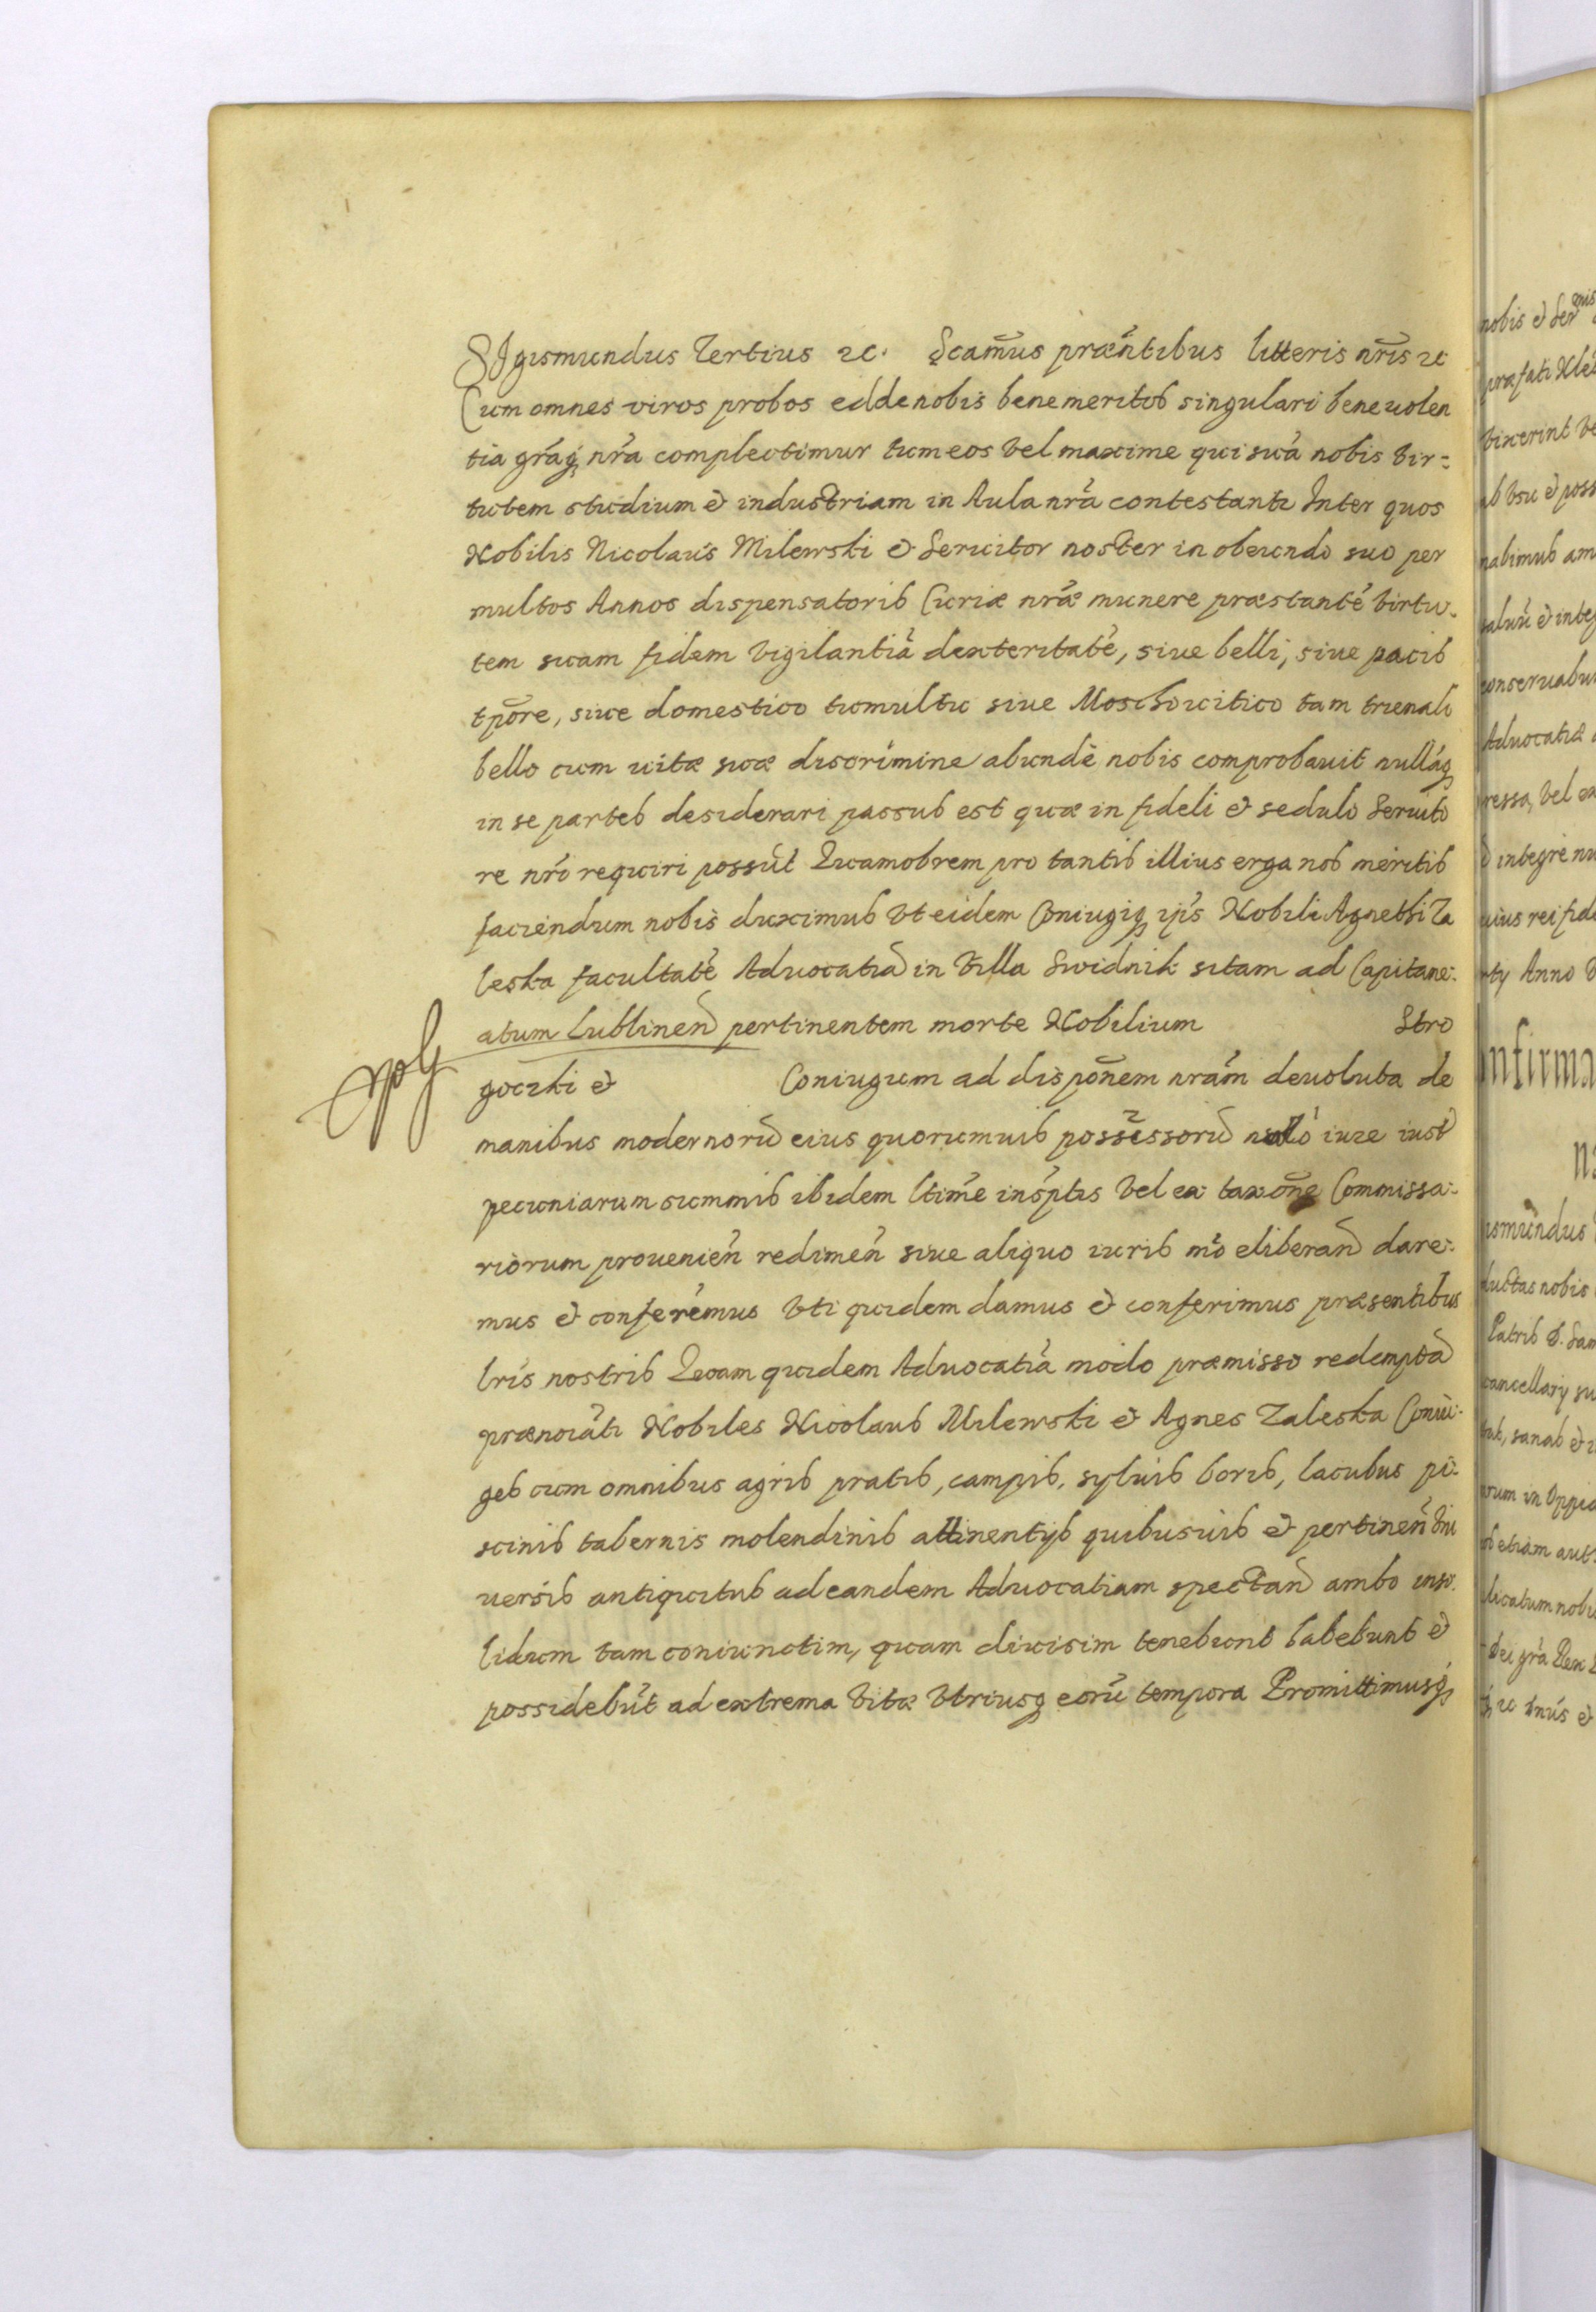 SIgismundus Tertius ꝛc. Scam̃us præñtibus litteris nr̃is ꝛc
Cum omnes viros probos edde nobis benemeritos singulari beneuolen
tia gr̃aq; nr̃a complectimur tum eos vel maxime qui suã nobis vir-
tutem studium et industriam in Aula nr̃a contestanti Inter quos
Nobilis Nicolaus Milewski et Seruitor noster in obeundo suo per
multos Annos dispensatoris Curiæ nr̃æ munere præstantẽ virtu-
tem suam fidem vigilantiã dexteritatẽ, siue belli, siue pacis
tp̃ore, siue domestico tumultu siue Moschouitico tam trienali
bello cum uitæ suæ discrimine abundè nobis comprobauit nullãq;
in se partes desiderari passus est quæ in fideli et sedulo Seruito
re nr̃o requiri possũt Quamobrem pro tantis illius erga nos meritis
faciendum nobis duximus vt eidem Coniugiq; ip̃s Nobili Agnethi Za
leska facultatẽ Aduocatiã in Villa Swidnik sitam ad Capitane-
atum Lublinen̄ pertinentem morte Nobilium Stro
goczki et Coniugum ad dispon̄em nrãm deuoluta de
manibus modernorũ eius quorumuis possessorũ iure iust
pecuniarum summis ibidem ltim̃e insc̃ptis vel ex taxoñe Commissa-
riorum prouenien̄ redimen̄ siue aliquo iuris mõ eliberan̄ dare-
mus et conferemus vti quidem damus et conferimus præsentibus
lr̃is nostris Quam quidem Aduocatiã modo præmisso redemptã
prænoĩati Nobiles Nicolaus Milewski et Agnes Zaleska Coniu-
ges cum omnibus agris pratis, campis, syluis boris, lacubus pi-
scinis tabernis molendinis attinentijs quibusuis et pertinen̄ vni
uersis antiquitus ad eandem Aduocatiam spectan̄ ambo inso-
lidum tam coniunctim, quam diuisim tenebunt habebunt et
possidebũt ad extrema vitæ vtriusq; eorũ tempora Promittimusq;